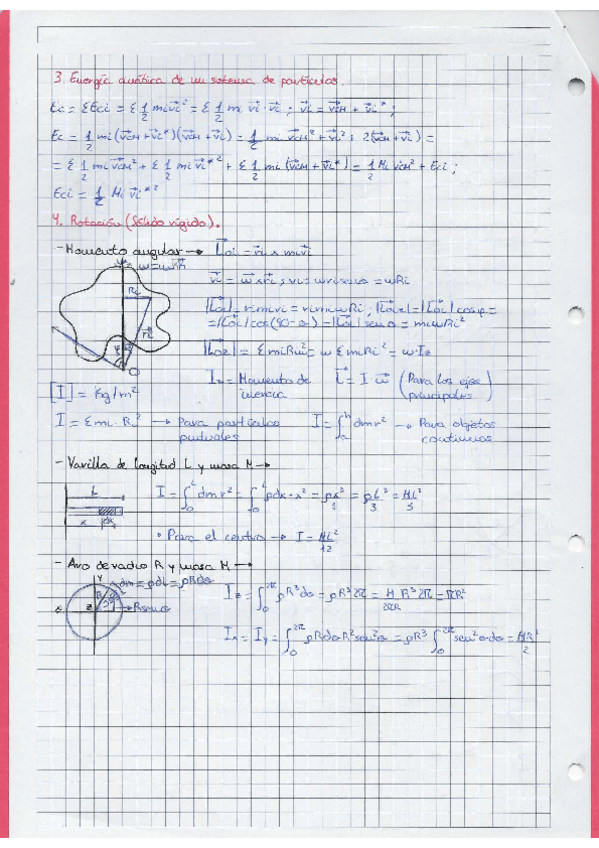 3. Energía cinética de un sistema de partículas.
Ec = ΣEci = Σ 1/2 mi vi² = Σ 1/2 mi vi · vi ; vi = vCM + vi* ;
Ec = 1/2 mi (vCM + vi*)(vCM + vi) = 1/2 mi vCM² + vi² + 2(vCM + vi) =
= Σ 1/2 mi vCM² + Σ 1/2 mi vi*² + Σ 1/2 mi (vCM + vi*) = 1/2 Mi vCM² + Eci ;
Eci = 1/2 Mi vi*²
4. Rotación (Sólido rígido).
- Momento angular → Loi = ri x mivi
vi = w x ri ; vi = w ri senα = wRi
Ri
ri
O
|Loi| = rimivi = rimiwRi , |Loiz| = |Loi| cosφ =
= |Loi| cos(90-α) = |Loi| senα = miwRi²
|Loz| = ΣmiRiw² = w ΣmiRi² = w·Iz
Iz = Momento de inercia
L = I w (Para los ejes principales)
[I] = Kg/m²
I = Σmi·Ri² → Para partículas puntuales
I = ∫ dm r² → Para objetos continuos
- Varilla de longitud L y masa M →
L
x
dx
I = ∫₀ᴸ dm r² = ∫₀ᴸ ρdx·x² = ρx³/3 = ρL³/3 = ML²/3
• Para el centro → I = ML²/12
- Aro de radio R y masa M →
Y
dm = ρdl = ρRdα
R
Rsenα
Iz = ∫₀²π ρR³dα = ρR³2π = M/2πR R³2π = MR²
Ix = Iy = ∫₀²π ρRdαR²sen²α = ρR³ ∫₀²π sen²αdα = MR²/2